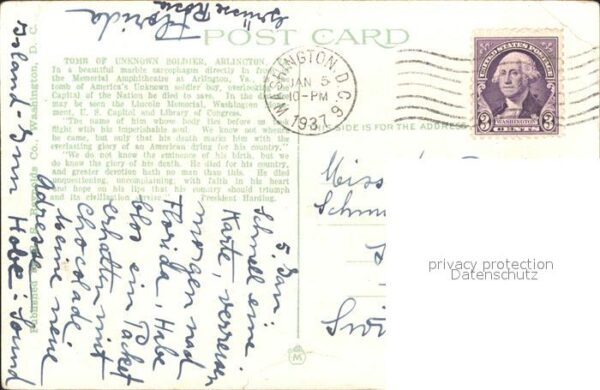 POST CARD
TOMB OF UNKNOWN SOLDIER, ARLINGTON.
In a beautiful marble sarcophagus directly in front of
the Memorial Amphitheatre at Arlington,
tomb of America's Unknown soldier boy, overlooking the
Capital of the Nation he died to save. In the distance
may be seen the Lincoln Memorial, Washington
U. S. Capitol and Library of Congress.
"The name of him whose body lies before us took
flight with his imperishable soul. We know not whence
he came, but only that his death marks him with the
everlasting glory of an American dying for his country."
"We do not know the eminence of his birth, but we
do know the glory of his death. He died for his country,
and greater devotion hath no man than this. He died
unquestioning, uncomplaining, with faith in his heart
and hope on his lips that his country should triumph
and its civilization
President Harding.
Reynolds Co., Washington, D. C.
SIDE IS FOR THE ADDRESS
WASHINGTON, D.C.
JAN 5
10-PM
1937
UNITED STATES POSTAGE
WASHINGTON
3 CENTS 3
5. Jan
Schnell eine
Karte, verreisen
morgen nach
Florida, Habe
blos ein Packet
erhalten mit
Chocolade
Meine neue
Adresse
Island-Inn Hobe-Sound
Florida
Grüsse Rosa
Miss
M
privacy protection
Datenschutz